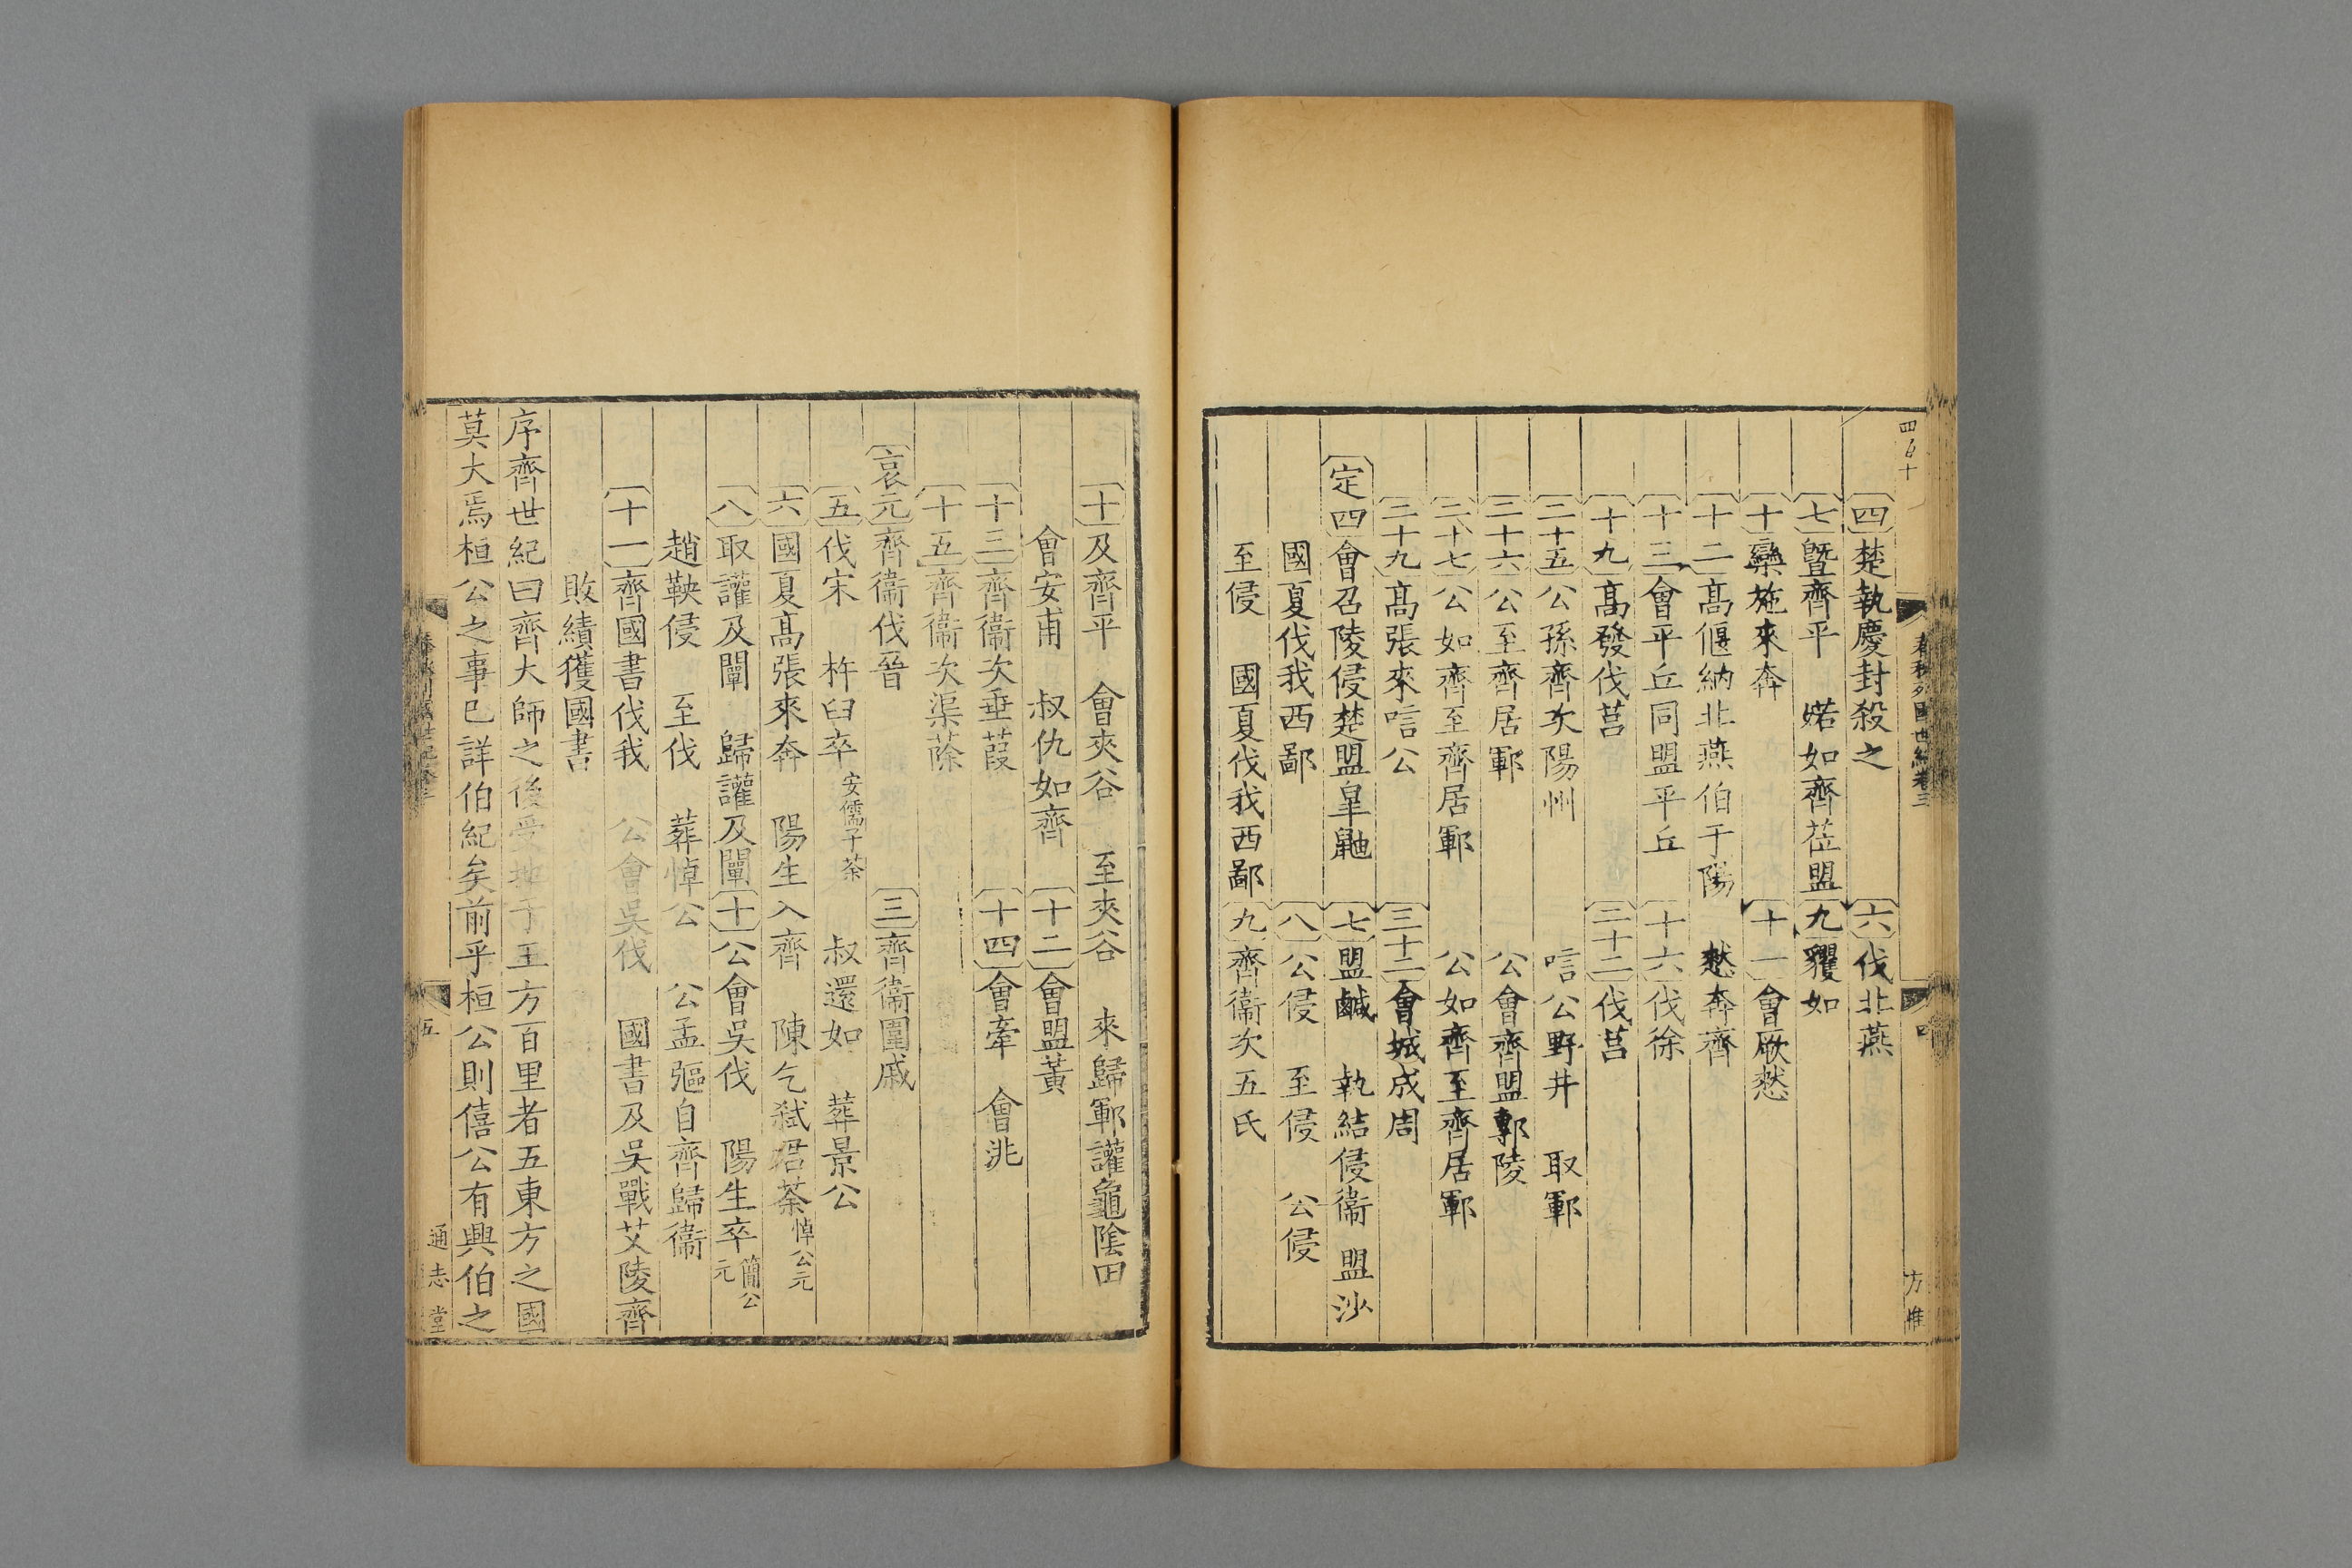 四百十
春秋列國世紀卷三
四
方惟
四 楚執慶封殺之 六 伐北燕
七 曁齊平 婼如齊莅盟 九 貜如
十 欒施來奔 十一 會厥憖
十二 髙偃納北燕伯于陽 憖奔齊
十三 會平丘同盟平丘 十六 伐徐
十九 髙發伐莒 二十二 伐莒
二十五 公孫齊次陽州 唁公野井 取鄆
二十六 公至齊居鄆 公會齊盟鄟陵
二十七 公如齊至齊居鄆 公如齊至齊居鄆
二十九 髙張來唁公 三十二 會城成周
定四 會召陵侵楚盟皐鼬 七 盟鹹 執結侵衞 盟沙
國夏伐我西鄙 八 公侵 至侵 公侵
至侵 國夏伐我西鄙 九 齊衞次五氏
十 及齊平 會夾谷 至夾谷 來歸鄆讙龜隂田
會安甫 叔仇如齊 十二 會盟黃
十三 齊衞次垂葭 十四 會牽 會洮
十五 齊衞次渠蒢
哀元 齊衞伐晉 三 齊衞圍戚
五 伐宋 杵臼卒 安儒子荼 叔還如 葬景公
六 國夏髙張來奔 陽生入齊 陳乞弑君荼 悼公元
八 取讙及闡 歸讙及闡 十 公會吳伐 陽生卒 簡公元
趙鞅侵 至伐 葬悼公 公孟彄自齊歸衞
十一 齊國書伐我 公會吳伐 國書及吳戰艾陵齊
敗績獲國書
序齊世紀曰齊大師之後受地于王方百里者五東方之國
莫大焉桓公之事已詳伯紀矣前乎桓公則僖公有興伯之
五
通志堂